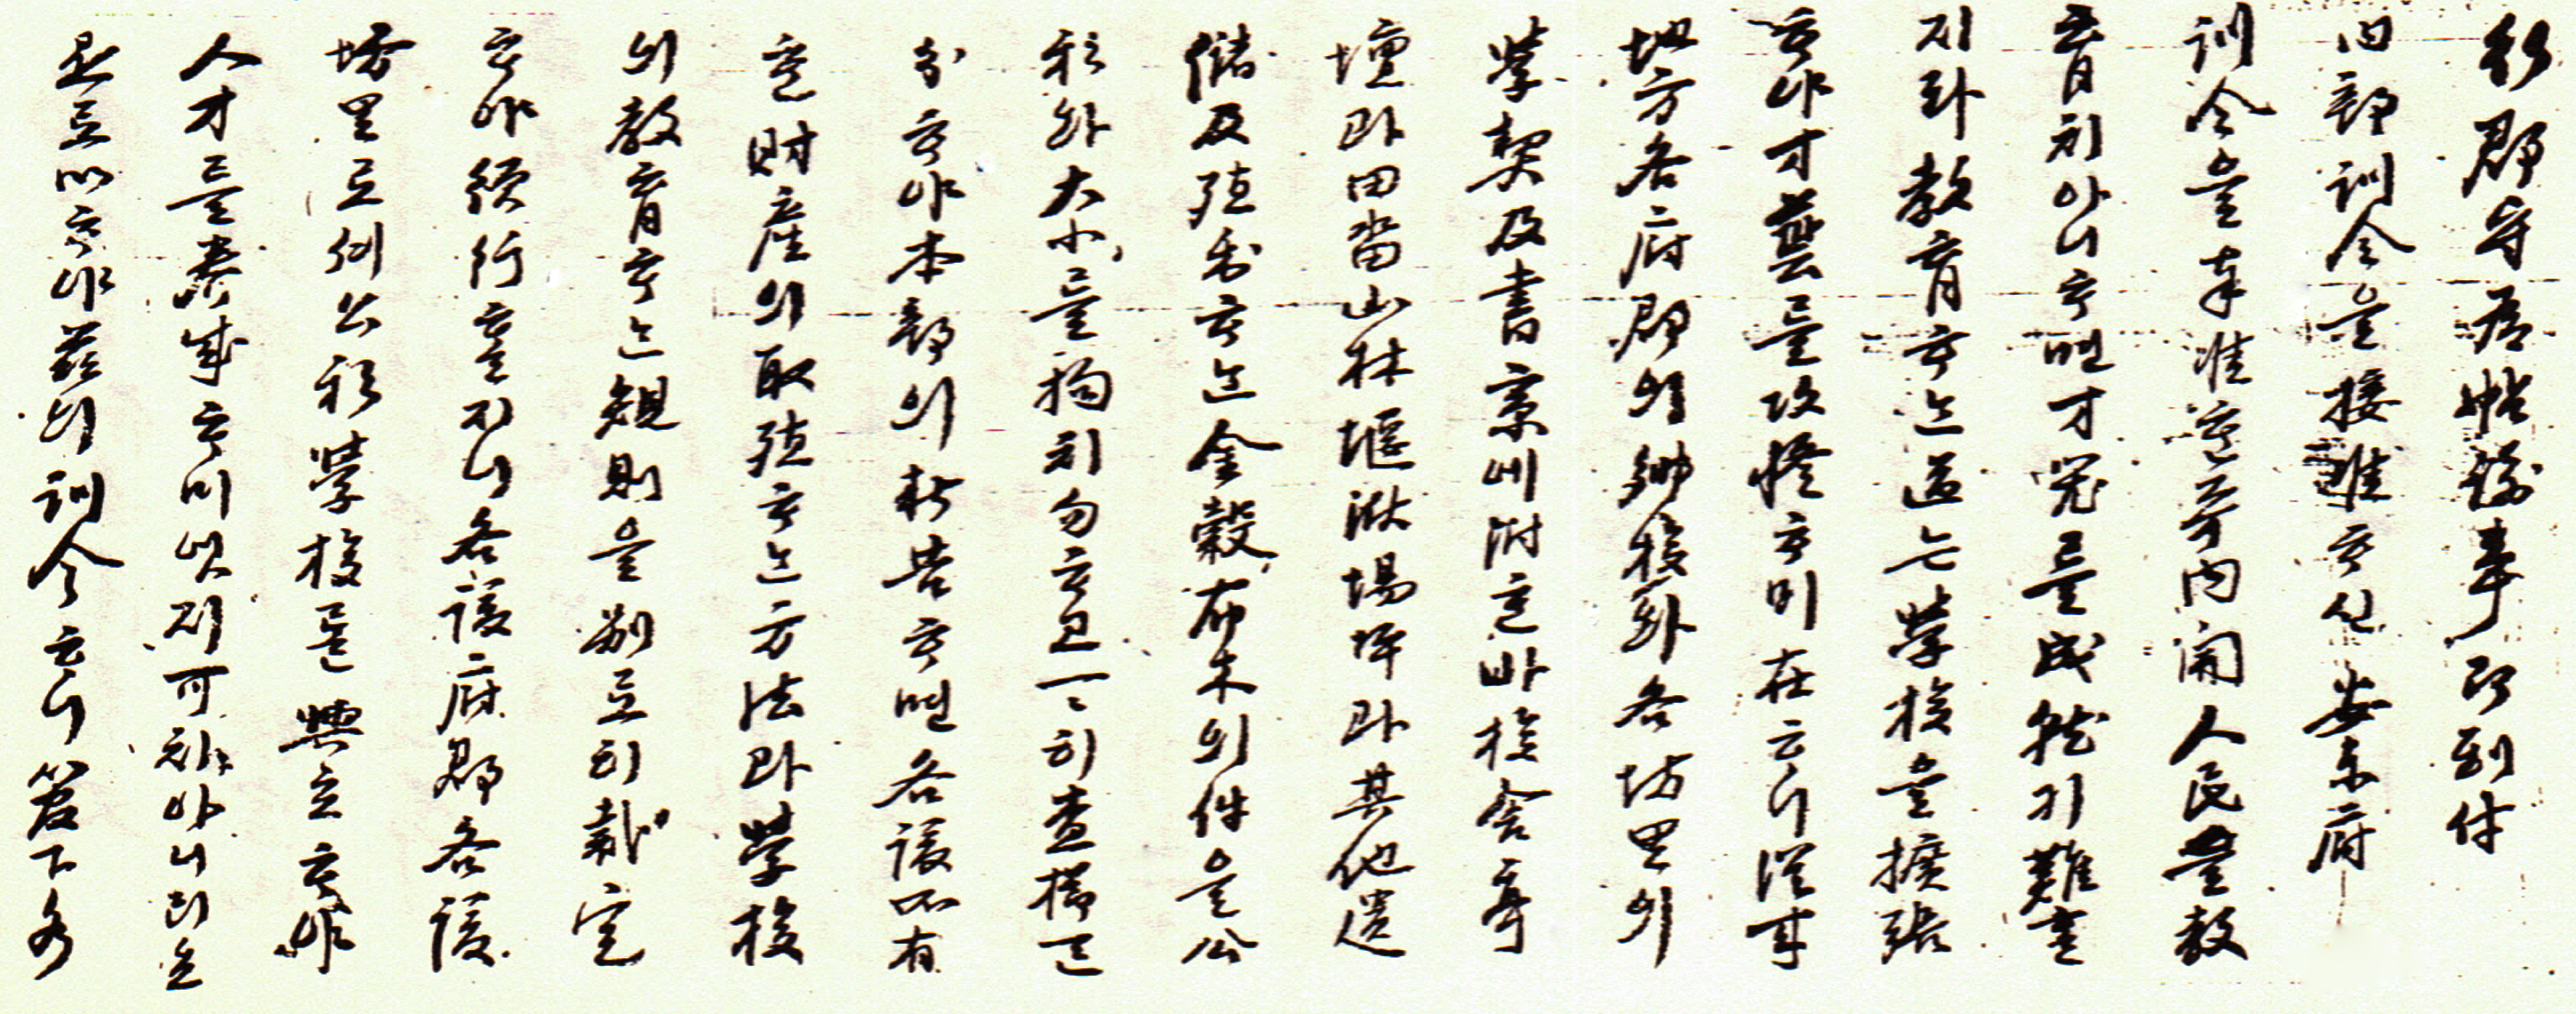 行郡守爲帖諭事即到付
內部訓令을接准ᄒᆞ신安東府
訓令을奉准ᄒᆞᆫ즉內開人民을敎
育치아니ᄒᆞ면才器를成就기難ᄒᆞᆫ
지라敎育ᄒᆞᄂᆞᆫ道ᄂᆞᆫ學校을擴張
ᄒᆞ야才藝를攻修ᄒᆞ미在ᄒᆞ니從前
地方各府郡의鄕校와各坊里의
學契及書室에附ᄒᆞᆫ바校舍亭
壇과田畓山林堰洑場坪과其他遺
儲及殖利ᄒᆞᄂᆞᆫ金穀布木의件을公
私와大小를拘치勿ᄒᆞ고一一히査櫛區
分ᄒᆞ야本部의報告ᄒᆞ면各該所有
ᄒᆞᆫ財産의取殖ᄒᆞᄂᆞᆫ方法과學校
의敎育ᄒᆞᄂᆞᆫ規則을別로히裁定
ᄒᆞ야續行ᄒᆞᆯ지니各該府郡各該
坊里로例公私學校를興立ᄒᆞ야
人才를養成ᄒᆞ미맛지可치아니리오
로ᄒᆞ야玆의訓令ᄒᆞ니